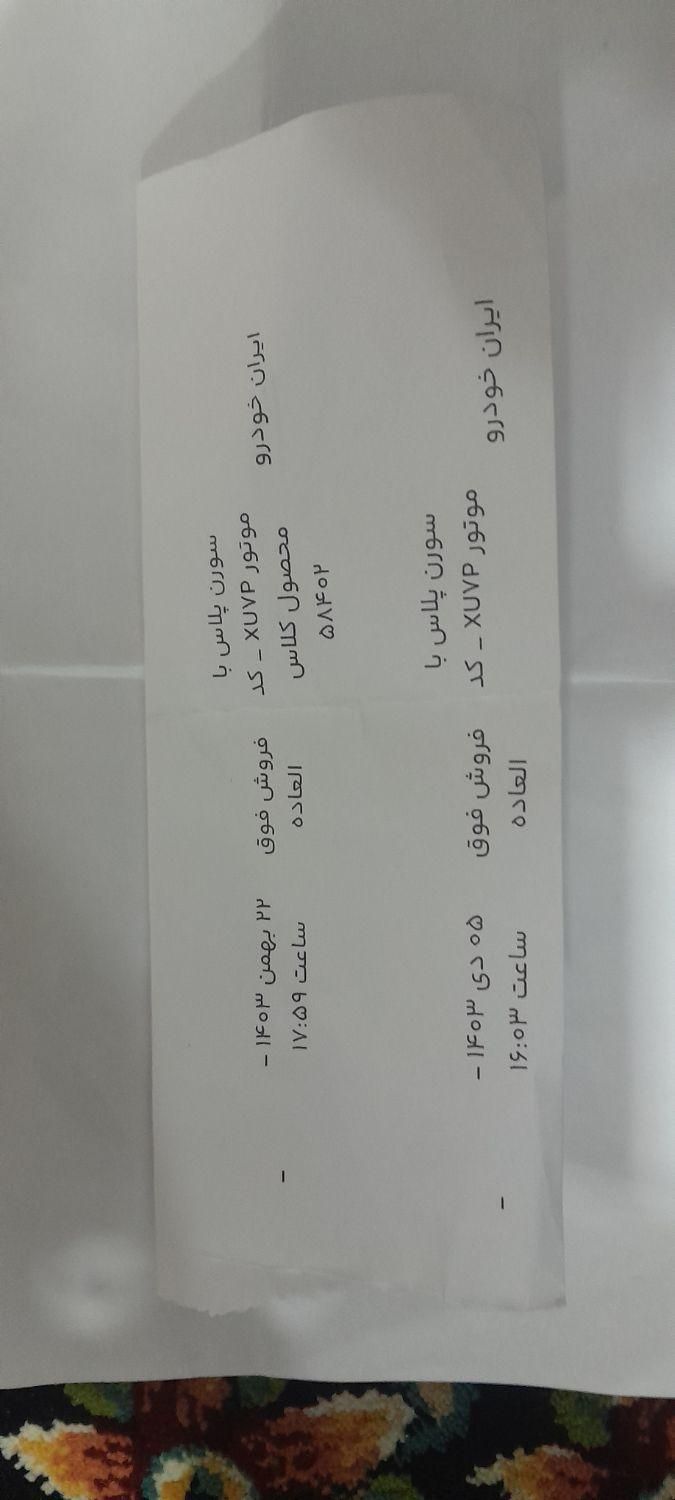 ایران خودرو
سورن پلاس با
موتور XU۷P - کد
محصول کلاس
۵۸۴۰۲
فروش فوق
العاده
۲۲ بهمن ۱۴۰۳ -
ساعت ۱۷:۵۹
-
ایران خودرو
سورن پلاس با
موتور XU۷P - کد
فروش فوق
العاده
۰۵ دی ۱۴۰۳ -
ساعت ۱۶:۰۳
-